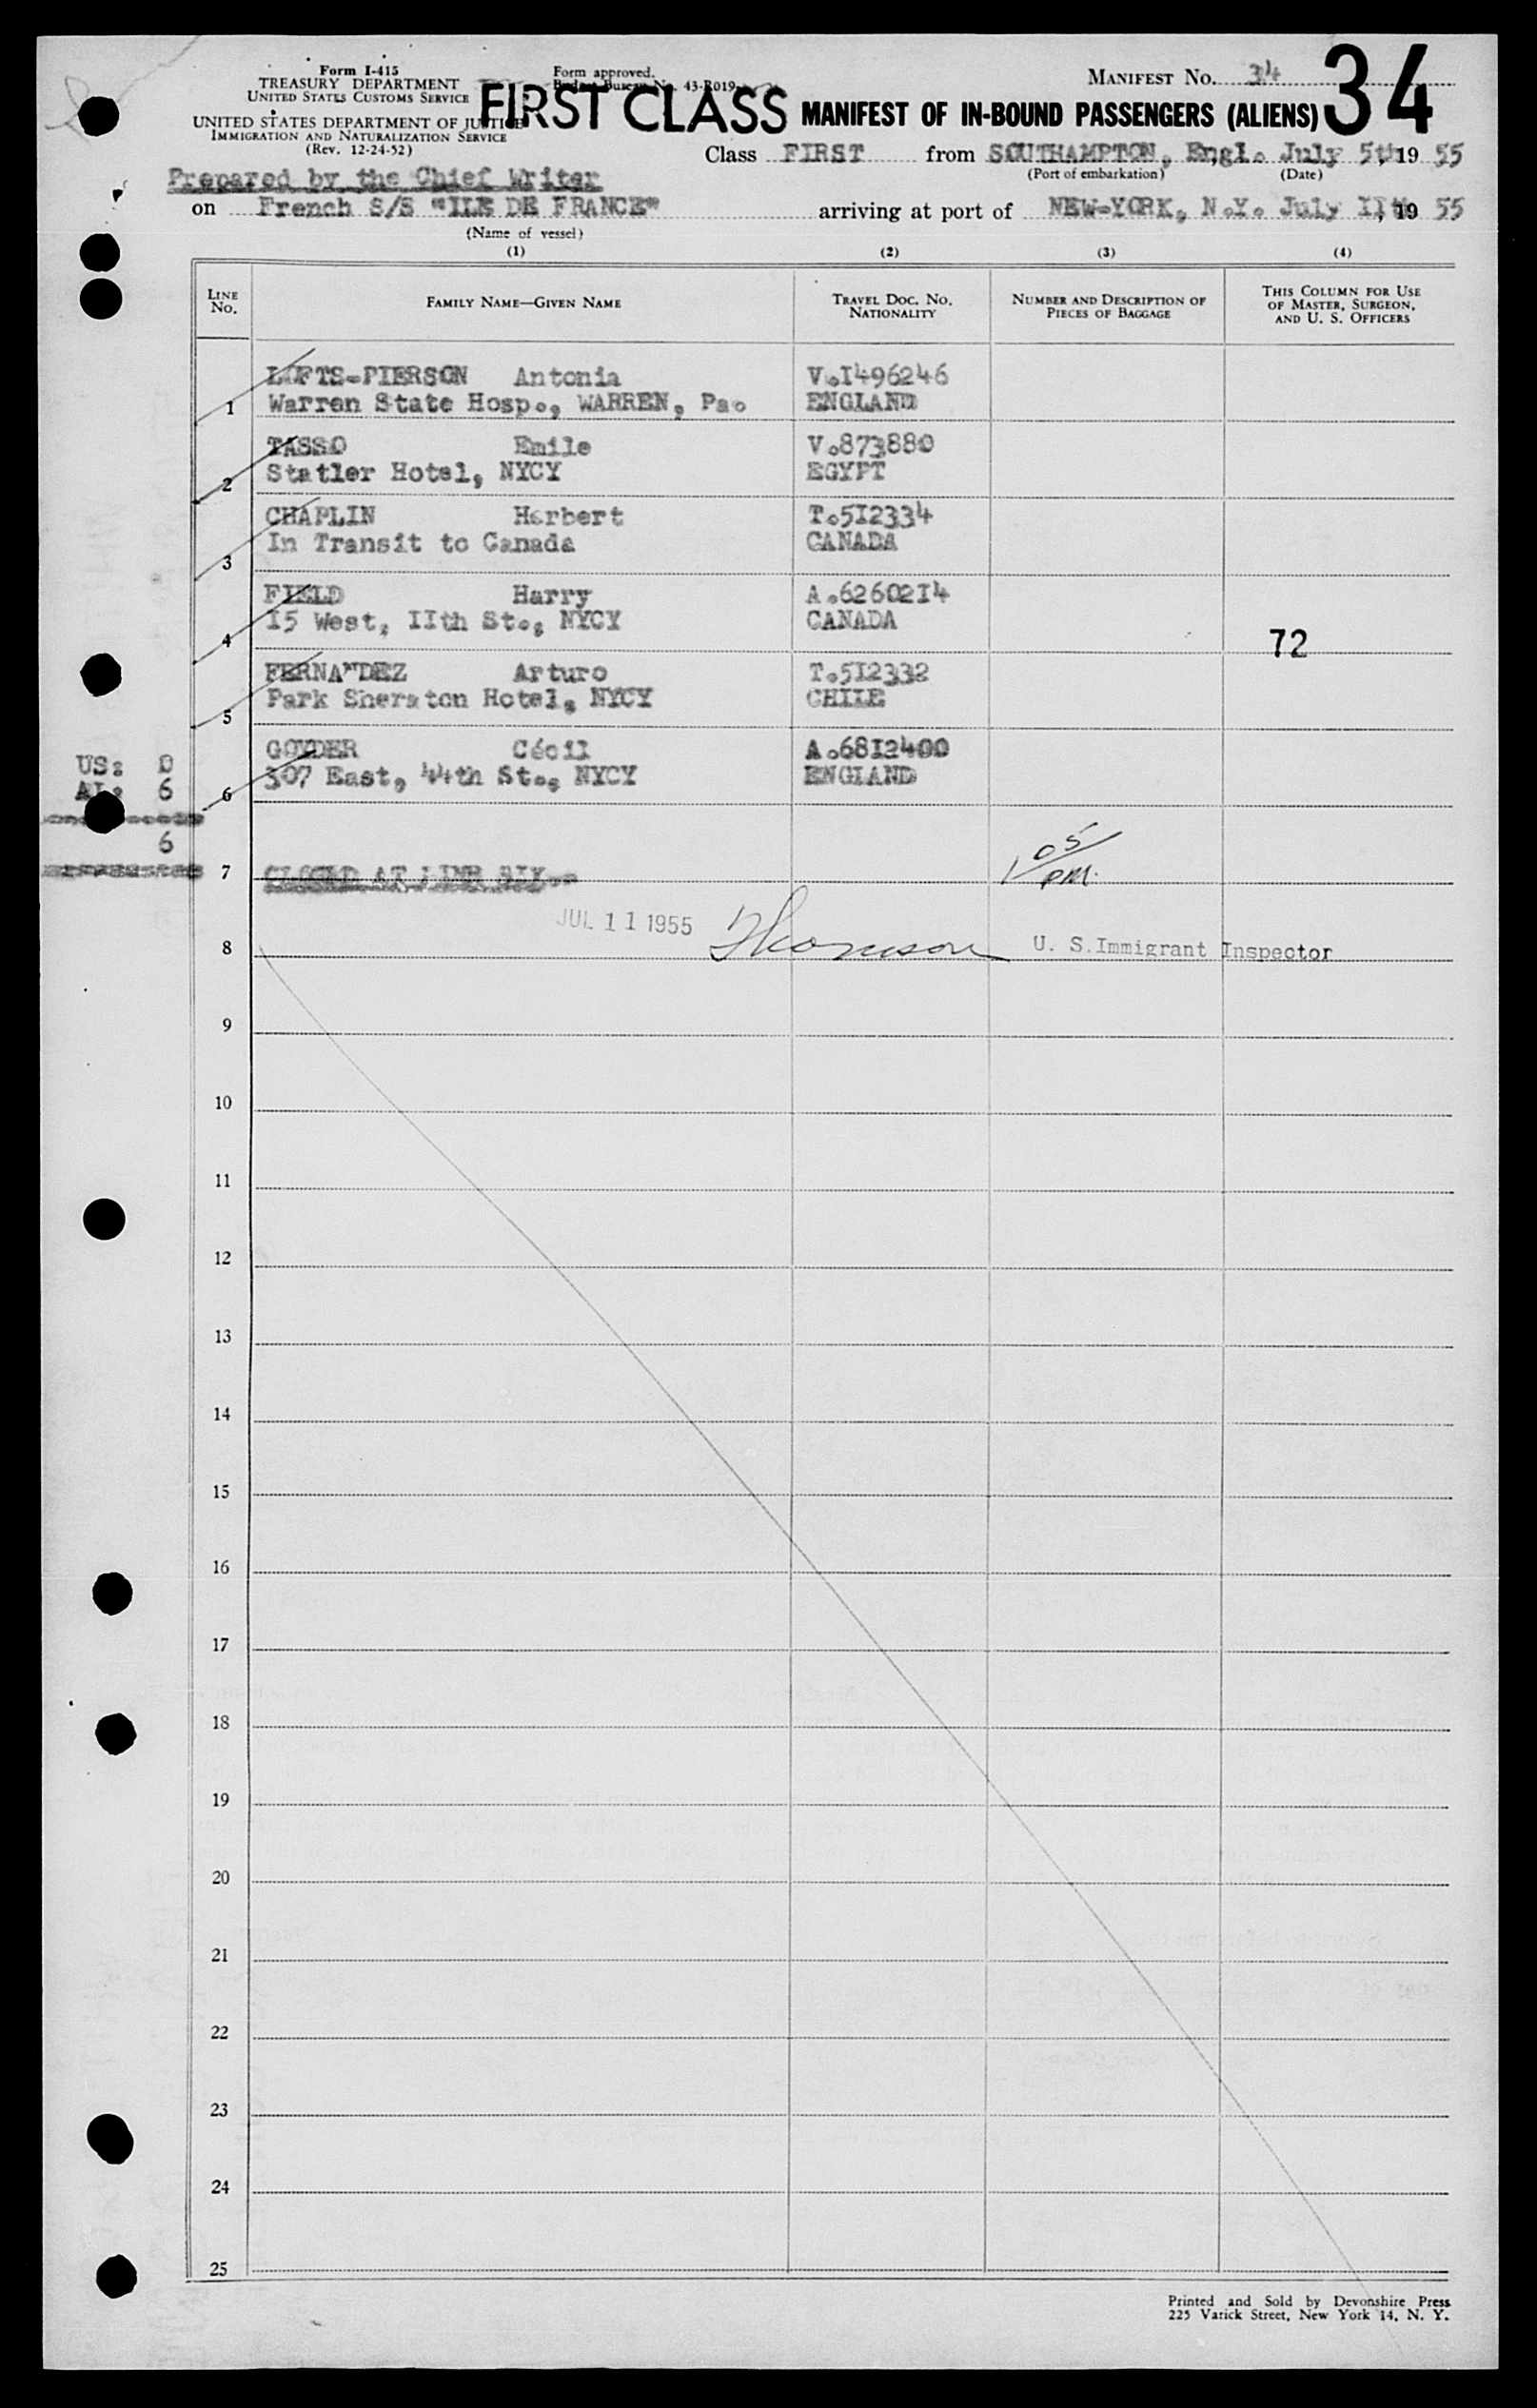 Form I-415
TREASURY DEPARTMENT
UNITED STATES CUSTOMS SERVICE
UNITED STATES DEPARTMENT OF JUSTICE
IMMIGRATION AND NATURALIZATION SERVICE
(Rev. 12-24-52)
Form approved.
Budget Bureau No. 43-R019
MANIFEST No. 34
34
FIRST CLASS MANIFEST OF IN-BOUND PASSENGERS (ALIENS)
Class FIRST from SOUTHAMPTON, Engl. July 5th, 19 55
(Port of embarkation) (Date)
Prepared by the Chief Writer
on French S/S "ILE DE FRANCE" arriving at port of NEW-YORK, N.Y. July IIth, 19 55
(Name of vessel)
(1) (2) (3) (4)
LINE No. FAMILY NAME—GIVEN NAME TRAVEL DOC. NO. NATIONALITY NUMBER AND DESCRIPTION OF PIECES OF BAGGAGE THIS COLUMN FOR USE OF MASTER, SURGEON, AND U. S. OFFICERS
LOFTS-PIERSON Antonia V.I496246
1 Warren State Hosp., WARREN, Pa. ENGLAND
TASSO Emile V.873880
2 Statler Hotel, NYCY EGYPT
CHAPLIN Herbert T.5I2334
3 In Transit to Canada CANADA
FIELD Harry A.62602I4
4 I5 West, IIth St., NYCY CANADA
72
FERNANDEZ Arturo T.5I2332
5 Park Sheraton Hotel, NYCY CHILE
GOYDER Cécil A.68I2400
6 307 East, 44th St., NYCY ENGLAND
US: 0
AL: 6
6
7 CLOSED AT LINE SIX.-
1 05/PM.
JUL 11 1955 Thomson U. S. Immigrant Inspector
8
9
10
11
12
13
14
15
16
17
18
19
20
21
22
23
24
25
Printed and Sold by Devonshire Press
225 Varick Street, New York 14, N. Y.